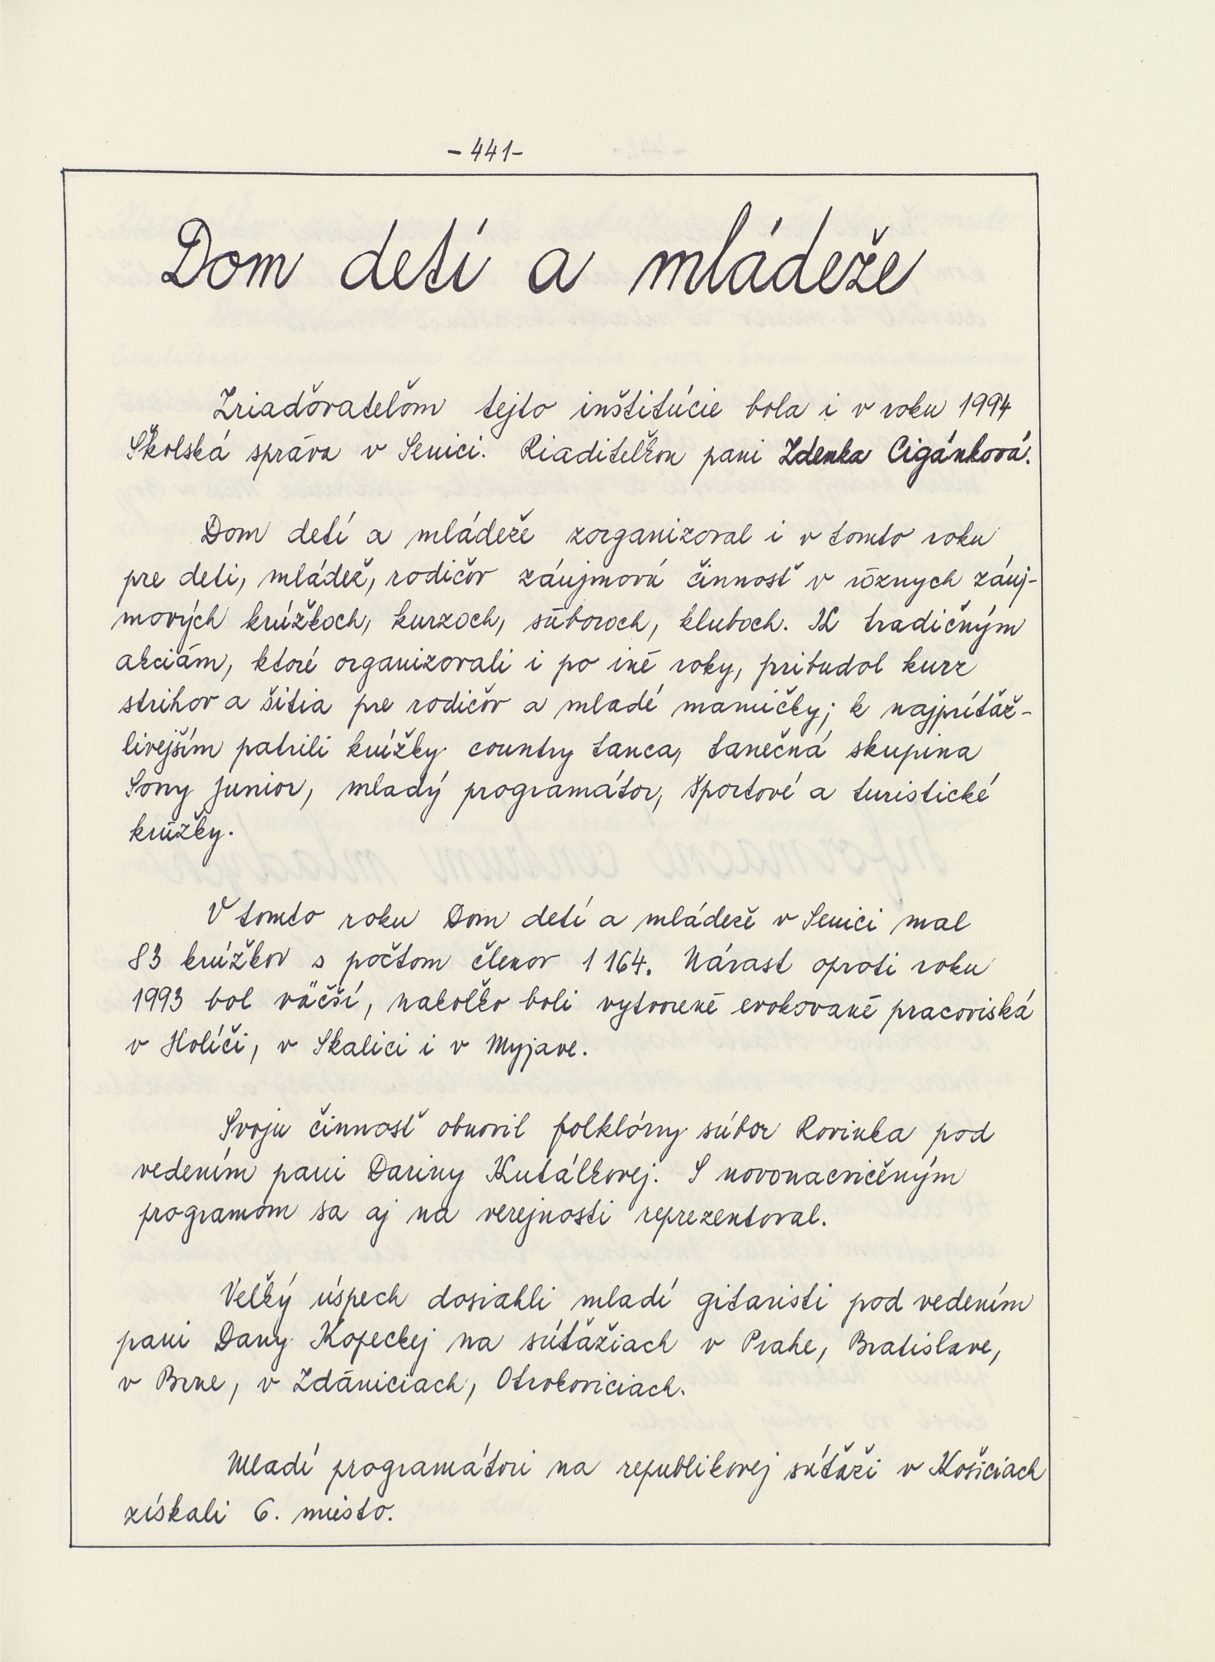 - 441 -
Dom detí a mládeže
Zriaďovateľom tejto inštitúcie bola i v roku 1994
Školská správa v Senici. Riaditeľkou pani Zdenka Cigánková.
Dom detí a mládeže zorganizoval i v tomto roku
pre deti, mládež, rodičov záujmovú činnosť v rôznych záuj-
mových krúžkoch, kurzoch, súboroch, kluboch. K tradičným
akciám, ktoré organizovali i po iné roky, pribudol kurz
strihov a šitia pre rodičov a mladé mamičky; k najpríťaž-
livejším patrili krúžky country tanca, tanečná skupina
Sony Junior, mladý programátor, športové a turistické
krúžky.
V tomto roku Dom detí a mládeže v Senici mal
83 krúžkov s počtom členov 1 164. Nárast oproti roku
1993 bol väčší, nakoľko boli vytvorené evokované pracoviská
v Holíči, v Skalici i v Myjave.
Svoju činnosť obnovil folklórny súbor Rovinka pod
vedením pani Dariny Kutálkovej. S novonacvičeným
programom sa aj na verejnosti reprezentoval.
Veľký úspech dosiahli mladí gitaristi pod vedením
pani Dany Kopeckej na súťažiach v Prahe, Bratislave,
v Brne, v Zdániciach, Otrokoviciach.
Mladí programátori na republikovej súťaži v Košiciach
získali 6. miesto.